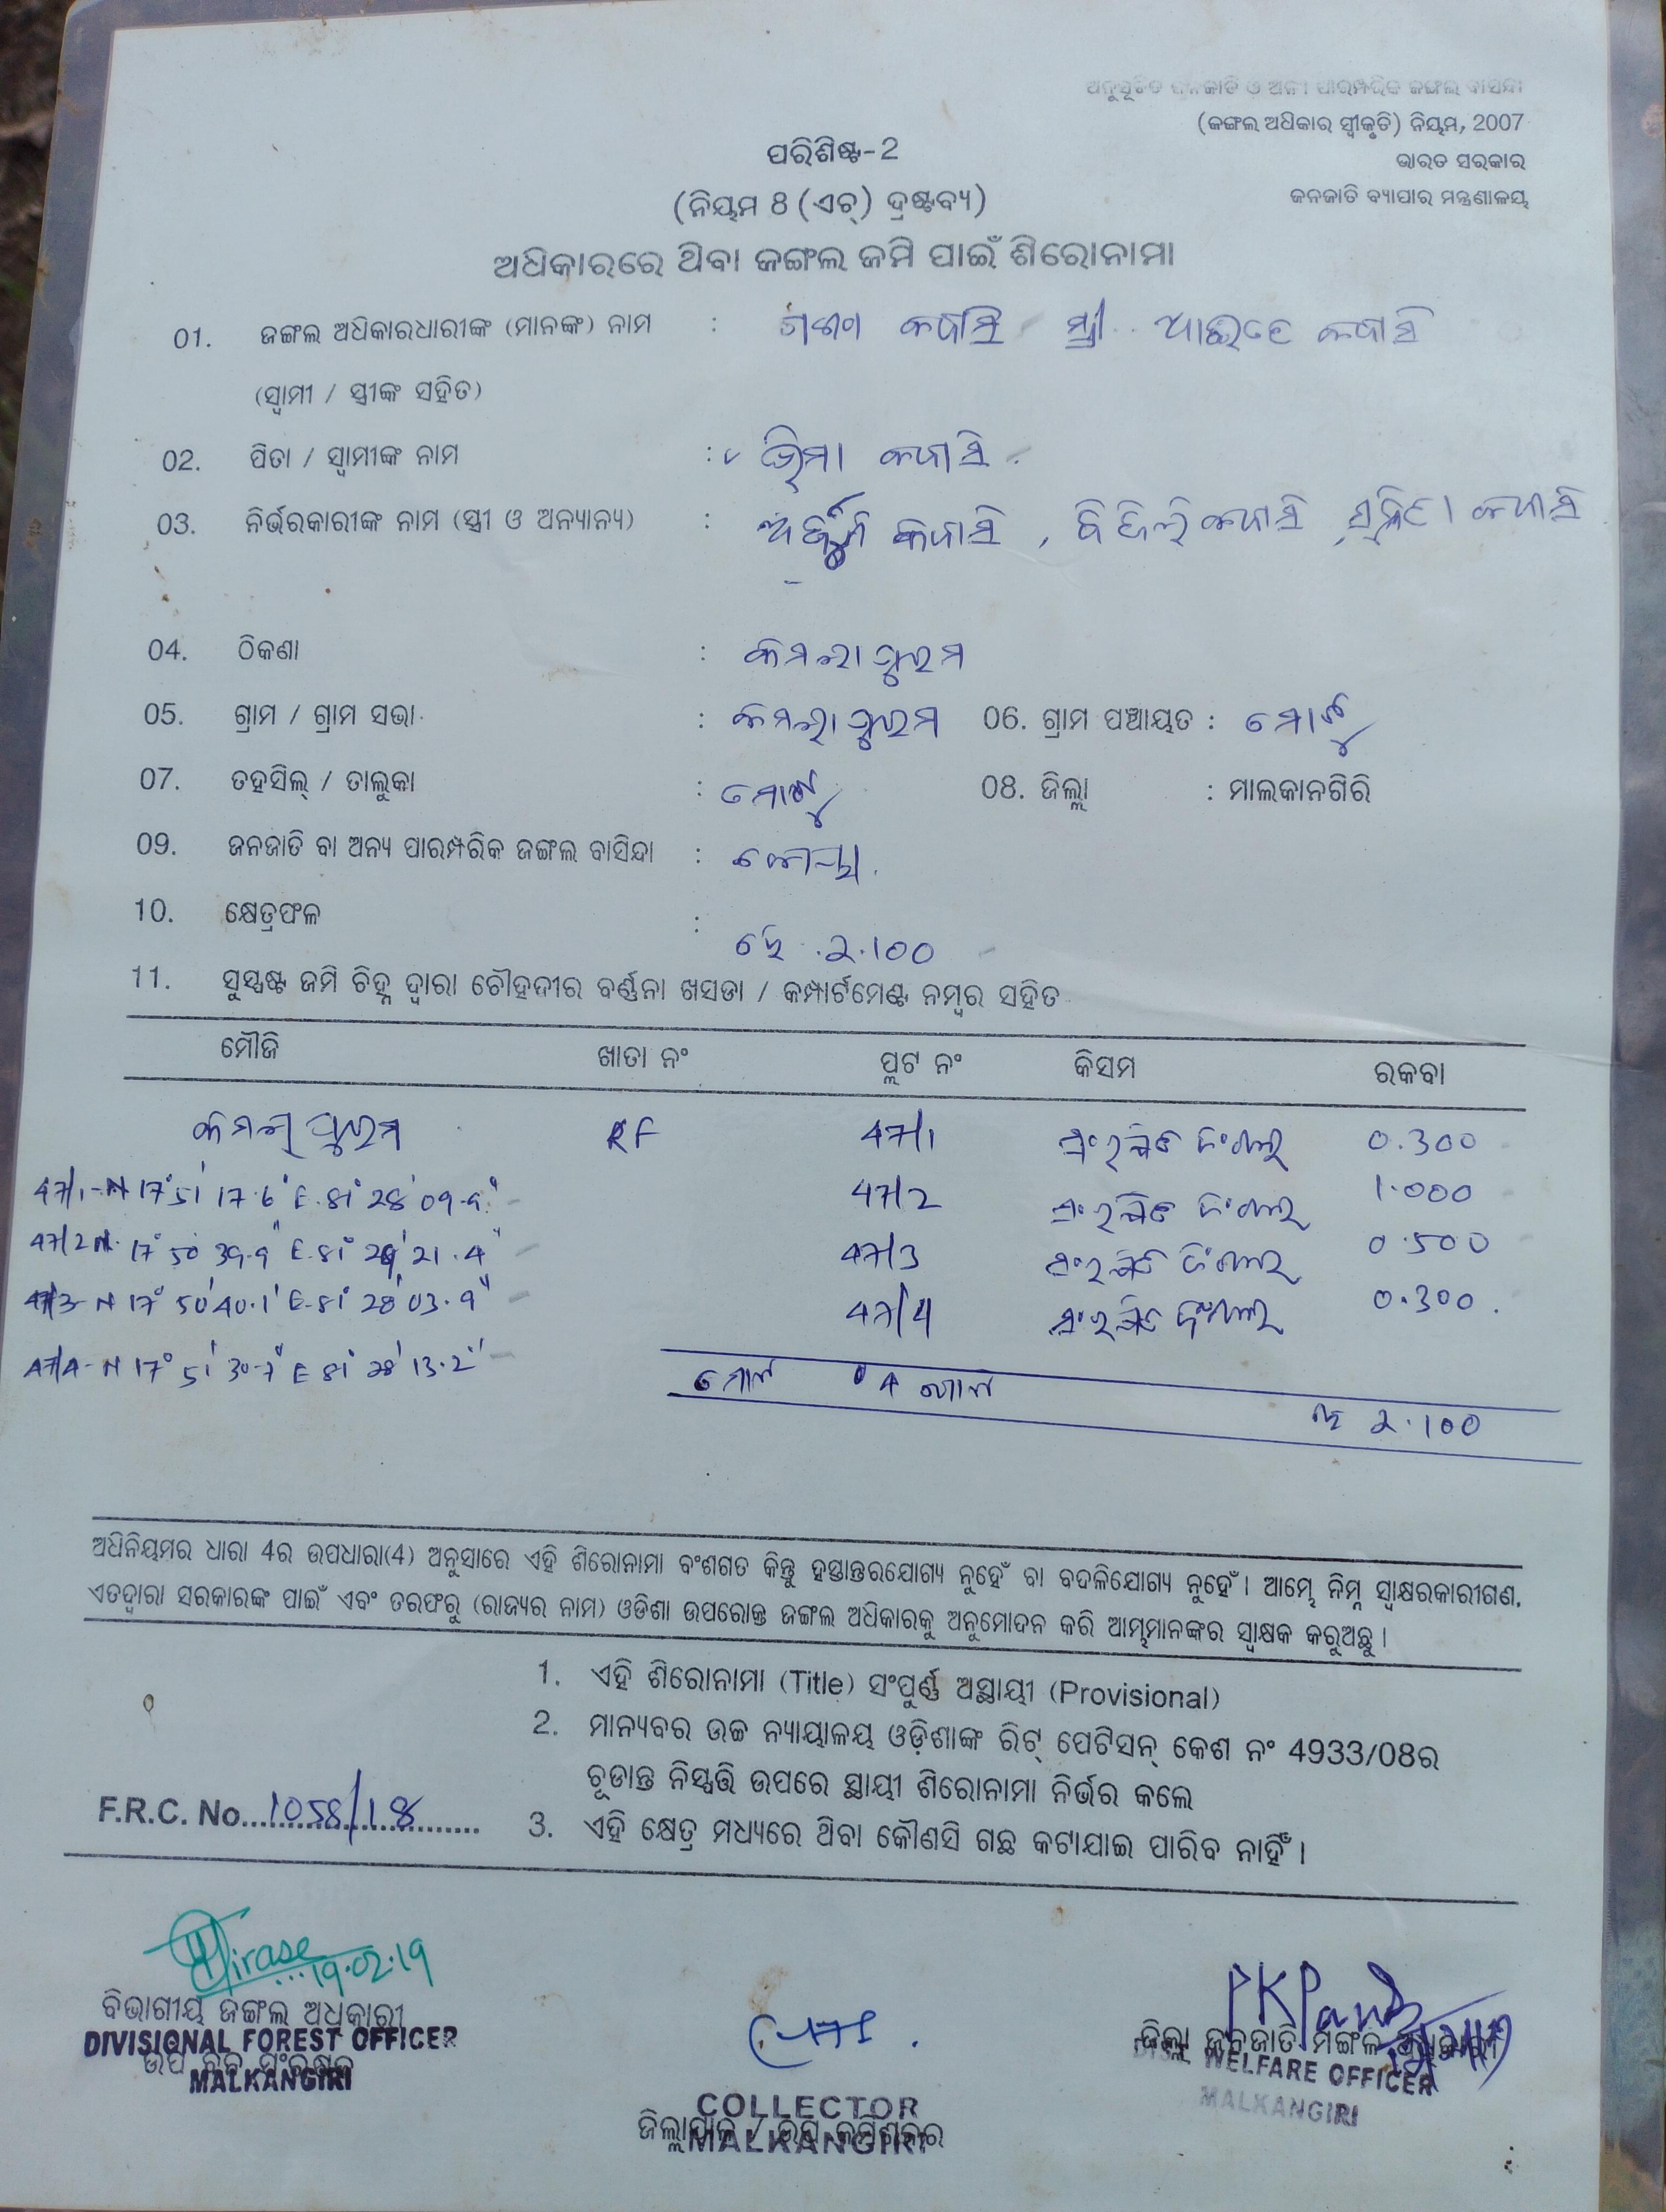 ଅନୁସୂଚିତ ଜନଜାତି ଓ ଅନ୍ୟ ପାରମ୍ପରିକ ଜଙ୍ଗଲ ବାସିନ୍ଦା
(ଜଙ୍ଗଲ ଅଧିକାର ସ୍ୱୀକୃତି) ନିୟମ, 2007
ଭାରତ ସରକାର
ଜନଜାତି ବ୍ୟାପାର ମନ୍ତ୍ରଣାଳୟ
ପରିଶିଷ୍ଟ-2
(ନିୟମ 8 (ଏଚ୍) ଦ୍ରଷ୍ଟବ୍ୟ)
ଅଧିକାରରେ ଥିବା ଜଙ୍ଗଲ ଜମି ପାଇଁ ଶିରୋନାମା
01. ଜଙ୍ଗଲ ଅଧିକାରଧାରୀଙ୍କ (ମାନଙ୍କ) ନାମ : କବାସି ସ୍ତ୍ରୀ କବାସି
(ସ୍ୱାମୀ / ସ୍ତ୍ରୀଙ୍କ ସହିତ)
02. ପିତା / ସ୍ୱାମୀଙ୍କ ନାମ : ଭିମା କବାସି
03. ନିର୍ଭରକାରୀଙ୍କ ନାମ (ସ୍ତ୍ରୀ ଓ ଅନ୍ୟାନ୍ୟ) : କବାସି , କବାସି , କବାସି
04. ଠିକଣା :
05. ଗ୍ରାମ / ଗ୍ରାମ ସଭା : 06. ଗ୍ରାମ ପଞ୍ଚାୟତ : ମୋଟୁ
07. ତହସିଲ୍ / ତାଲୁକା : ମୋଟୁ 08. ଜିଲ୍ଲା : ମାଲକାନଗିରି
09. ଜନଜାତି ବା ଅନ୍ୟ ପାରମ୍ପରିକ ଜଙ୍ଗଲ ବାସିନ୍ଦା : କୋୟା
10. କ୍ଷେତ୍ରଫଳ : ହେ 2.100
11. ସୁସ୍ପଷ୍ଟ ଜମି ଚିହ୍ନ ଦ୍ୱାରା ଚୌହଦୀର ବର୍ଣ୍ଣନା ଖସଡା / କମ୍ପାର୍ଟମେଣ୍ଟ ନମ୍ବର ସହିତ
ମୌଜି ଖାତା ନଂ ପ୍ଲଟ ନଂ କିସମ ରକବା
RF 47/1 ସଂରକ୍ଷିତ ଜଂଗଲ 0.300
47/1-N 17° 51' 17.6" E-81° 28' 09.9" 47/2 ସଂରକ୍ଷିତ ଜଂଗଲ 1.000
47/2 N 17° 50' 39.9" E-81° 21.4" 47/3 ସଂରକ୍ଷିତ ଜଂଗଲ 0.500
47/3-N 17° 50' 40.1" E-81° 28' 03.9" 47/4 ସଂରକ୍ଷିତ ଜଂଗଲ 0.300
47/4-N 17° 51' 30.7" E 81° 28' 13.2"
ମୋଟ 4 ହେ 2.100
ଅଧିନିୟମର ଧାରା 4ର ଉପଧାରା(4) ଅନୁସାରେ ଏହି ଶିରୋନାମା ବଂଶଗତ କିନ୍ତୁ ହସ୍ତାନ୍ତରଯୋଗ୍ୟ ନୁହେଁ ବା ବଦଳିଯୋଗ୍ୟ ନୁହେଁ। ଆମ୍ଭେ ନିମ୍ନ ସ୍ୱାକ୍ଷରକାରୀଗଣ,
ଏତଦ୍ୱାରା ସରକାରଙ୍କ ପାଇଁ ଏବଂ ତରଫରୁ (ରାଜ୍ୟର ନାମ) ଓଡିଶା ଉପରୋକ୍ତ ଜଙ୍ଗଲ ଅଧିକାରକୁ ଅନୁମୋଦନ କରି ଆମ୍ଭମାନଙ୍କର ସ୍ୱାକ୍ଷକ କରୁଅଛୁ।
1. ଏହି ଶିରୋନାମା (Title) ସଂପୂର୍ଣ୍ଣ ଅସ୍ଥାୟୀ (Provisional)
2. ମାନ୍ୟବର ଉଚ୍ଚ ନ୍ୟାୟାଳୟ ଓଡ଼ିଶାଙ୍କ ରିଟ୍ ପେଟିସନ୍ କେଶ ନଂ 4933/08ର
ଚୂଡାନ୍ତ ନିସ୍ପତ୍ତି ଉପରେ ସ୍ଥାୟୀ ଶିରୋନାମା ନିର୍ଭର କଲେ
F.R.C. No...1058/18...
3. ଏହି କ୍ଷେତ୍ର ମଧ୍ୟରେ ଥିବା କୌଣସି ଗଛ କଟାଯାଇ ପାରିବ ନାହିଁ।
19.02.19
ବିଭାଗୀୟ ଜଙ୍ଗଲ ଅଧିକାରୀ
DIVISIONAL FOREST OFFICER
ଉପ ବନ ସଂରକ୍ଷକ
MALKANGIRI
COLLECTOR
ଜିଲ୍ଲାପାଳ / ଉପ କମିଶନର
MALKANGIRI
PKPanda
ଜିଲ୍ଲା ଜନଜାତି ମଙ୍ଗଳ ଅଧିକାରୀ
DIST. WELFARE OFFICER
MALKANGIRI